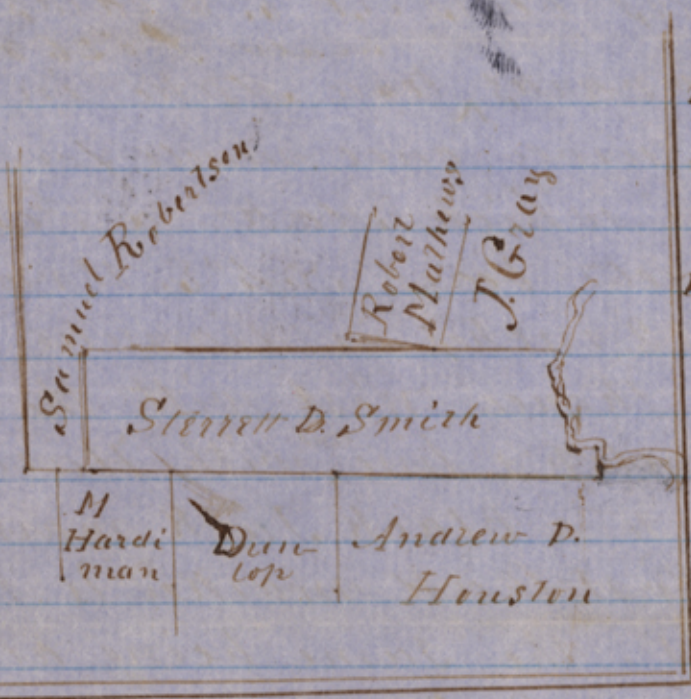 Samuel Robertson
Robert
Mathews
J. Gray
Sterrett D. Smith
M
Hardi
man
Dun-
lop
Andrew D.
Houston